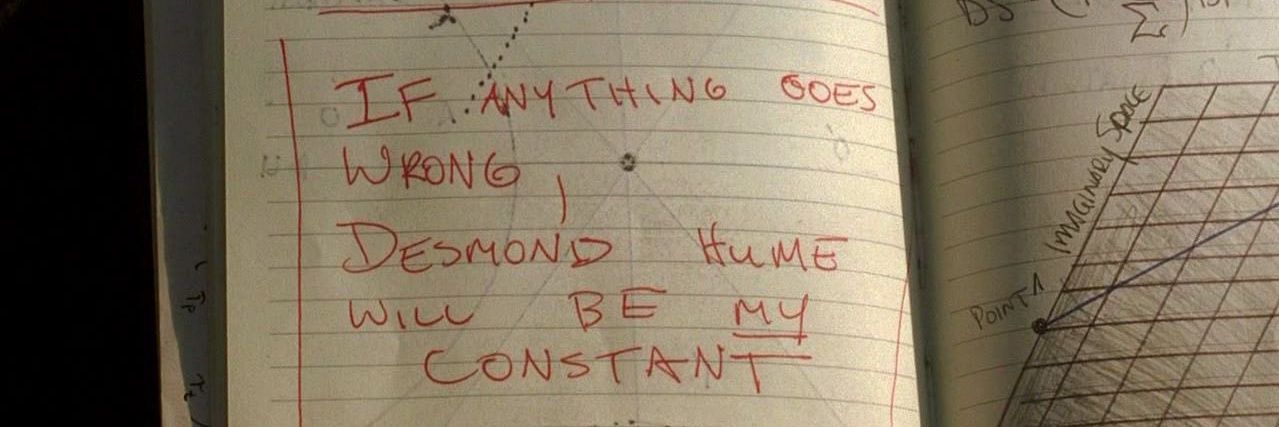 IF ANYTHING GOES
WRONG,
DESMOND HUME
WILL BE MY
CONSTANT
IMAGINARY SPACE
POINT A